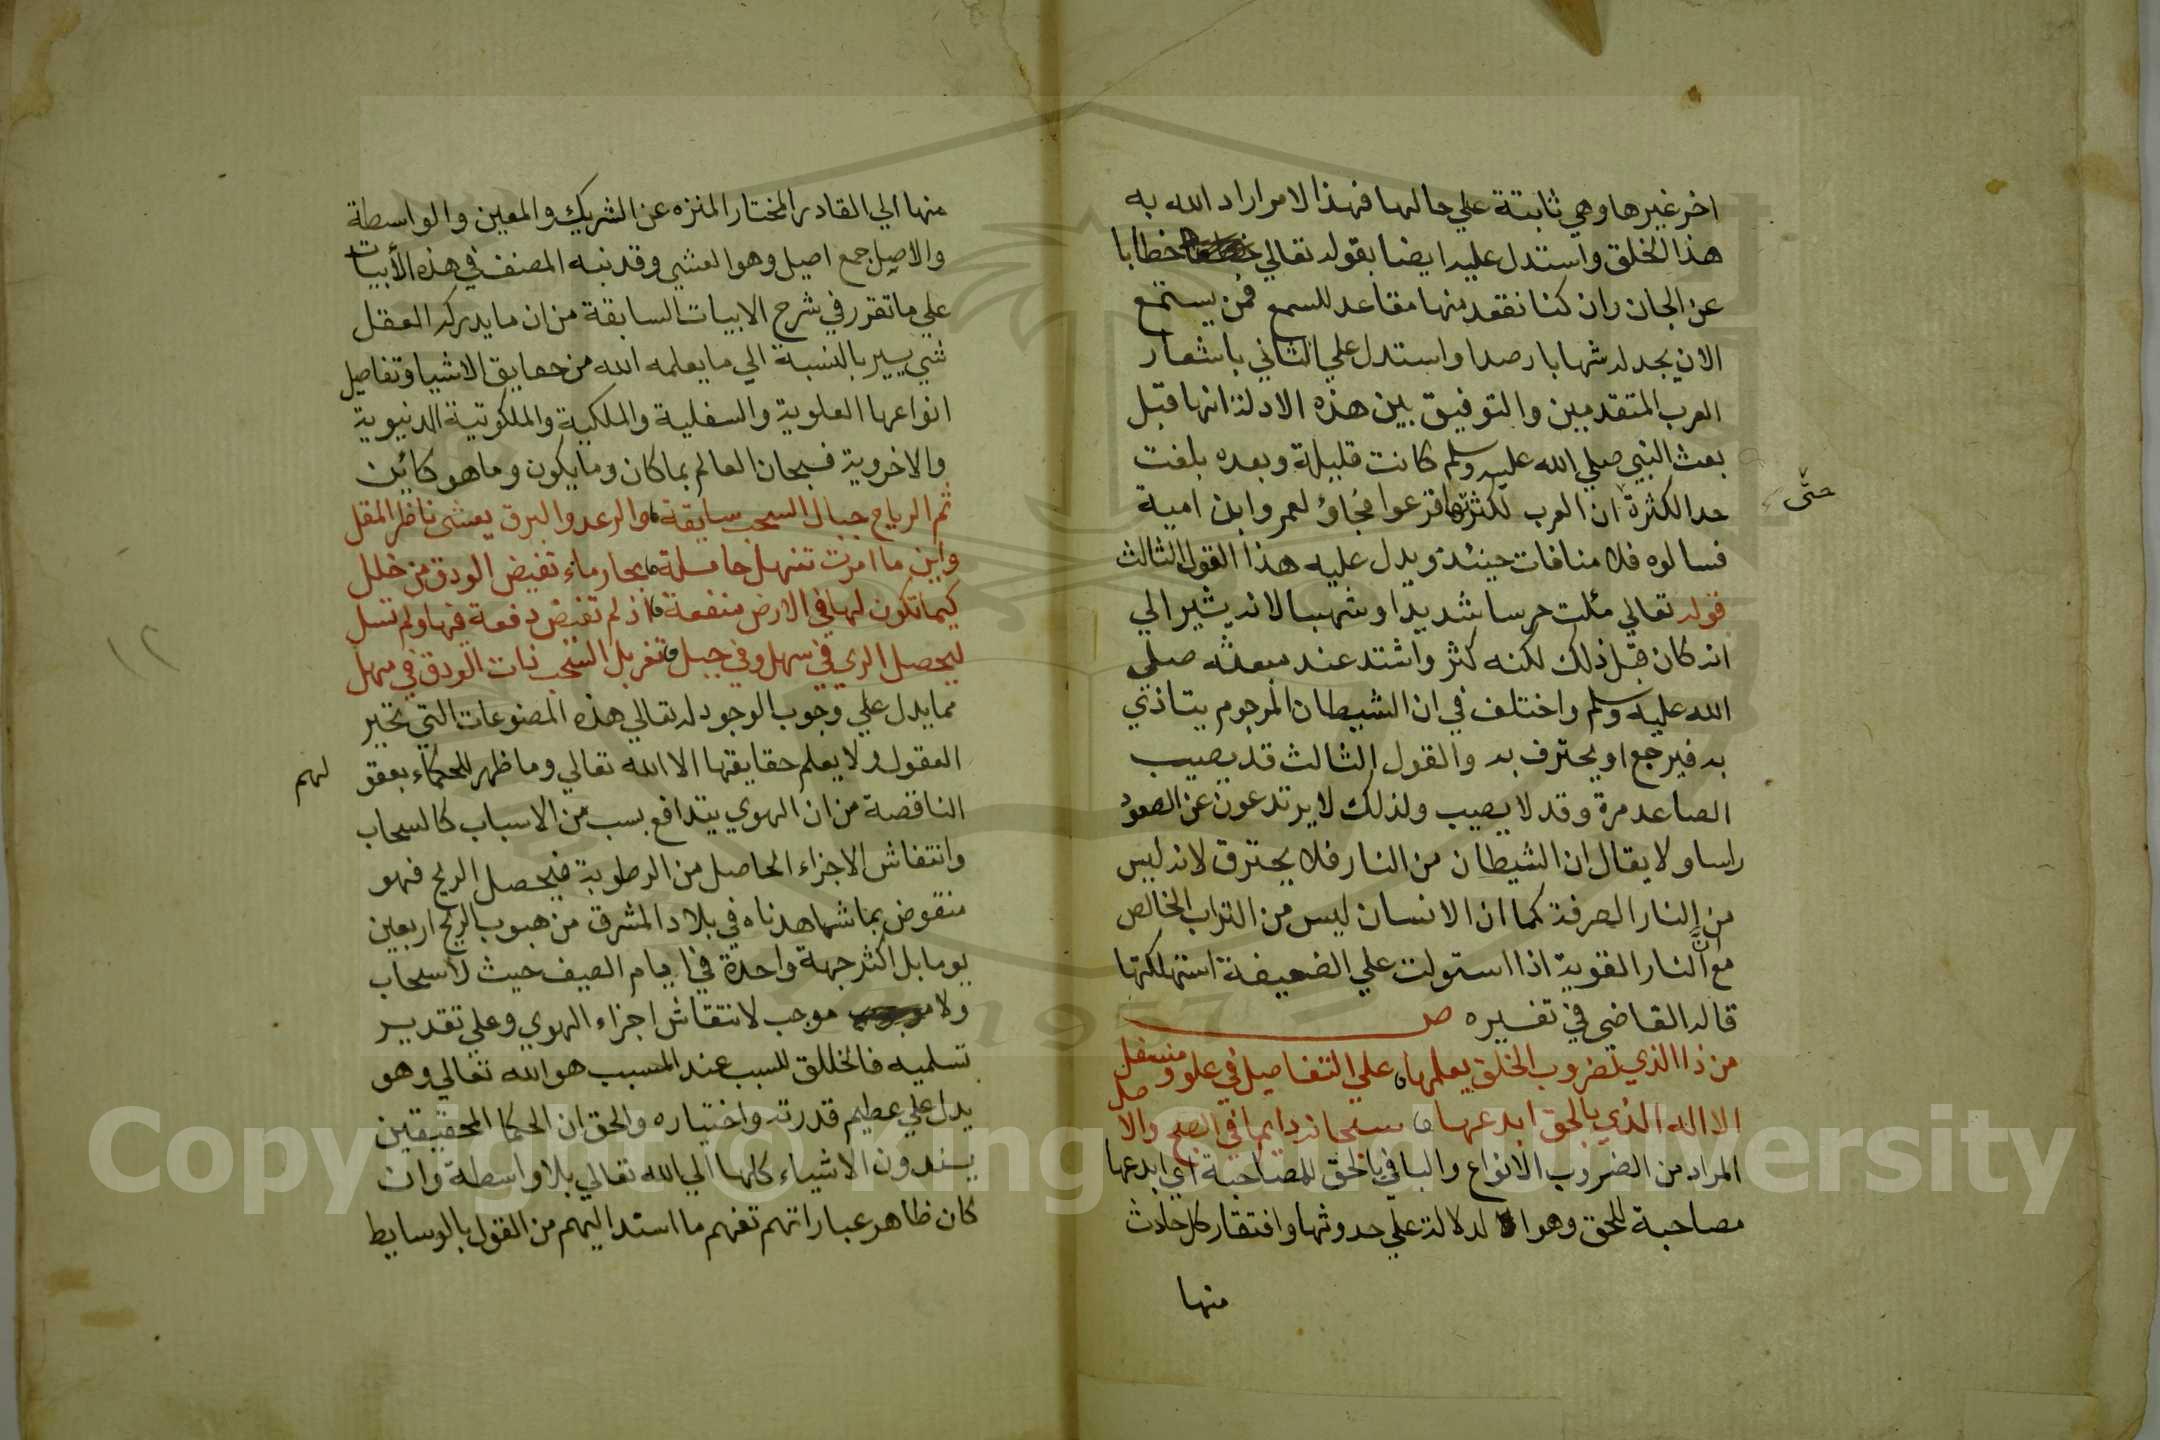 اخر غيرها وهي ثابتة علي حالها فهذا الامر اراد الله به
هذا الخلق واستدل عليه ايضا بقوله تعالي خطابا
عن الجان وان كنا نقعد منها مقاعد للسمع فمن يستمع
الان يجد له شهابا رصدا واستدل علي الثاني باشعار
العرب المتقدمين والتوفيق بين هذه الادلة انها قبل
بعث النبي صلي الله عليه وسلم كانت قليلة وبعده بلغت
حد الكثرة ان العرب لكثرتها فزعوا فجاؤ لعمرو ابن امية
حتّى
فسالوه فلا منافات حينئذ ويدل عليه هذا القول الثالث
قوله تعالي ملئت حرسا شديدا وشهبا لانه يشير الي
انه كان قبل ذلك لكنه كثر واشتد عند مبعثه صلي
الله عليه وسلم واختلف في ان الشيطان المرجوم يتاذي
به فيرجع او يحترف به والقول الثالث قد يصيب
الصاعد مرة وقد لا يصيب ولذلك لا يرتدعون عن الصعود
راسا ولا يقال ان الشيطان من النار فلا يحترق لانه ليس
من النار الصرفة كما ان الانسان ليس من التراب الخالص
مع ان النار القوية اذا استولت علي الضعيفة استهلكتها
قاله القاضي في تفسيره ص
من ذا الذي لضروب الخلق يعلمها علي التفاصيل في علو ومنسفل
الا اله الذي بالحق ابدعها سبحانه دايما في الصبح والاصل
المراد من الضروب الانواع والبا في بالحق للمصاحبة اي ابدعها
مصاحبة للحق وهو الدلالة علي حدوثها وافتقار كل حادث
منها
منها الي القادر المختار المنزه عن الشريك والمعين والواسطة
والاصيل جمع اصيل وهو العشي وقد نبه المصنف في هذه الأبيات
علي ما تقرر في شرح الابيات السابقة من ان ما يدركه العقل
شي يسير بالنسبة الي ما يعلمه الله من حقايق الاشيا وتفاصيل
انواعها العلوية والسفلية والملكية والملكوتية الدنيوية
والاخروية فسبحان العالم بما كان وما يكون وما هو كائن
ثم الرياح جبال السحب سايقة والرعد والبرق يعشي ناظر المقل
واين ما امرت تنهل حاملة بحار ماء تفيض الودق من خلل
كيما تكون لها في الارض منفعة اذ لم تفيض دفعة فيها ولم تسل
ليحصل الري في سهل وفي جبل تغربل السحب ذات الودق في مهل
مما يدل علي وجوب الوجود له تعالي هذه المصنوعات التي تحير
العقول ولا يعلم حقايقها الا الله تعالي وما ظهر للحكماء بعقو
لهم
الناقصة من ان الهوي يتدافع بسبب من الاسباب كالسحاب
وانتفاش الاجزاء الحاصل من الرطوبة فيحصل الريح فهو
منقوض بما شاهدناه في بلاد المشرق من هبوب الريح اربعين
يوما بل اكثر جهة واحدة في ايام الصيف حيث لا سحاب
ولا موجب لانتفاش اجزاء الهوي وعلي تقدير
تسلميه فالخالق للسبب عند المسبب هو الله تعالي وهو
يدل علي عظيم قدرته واختياره والحق ان الحكما المحقيقين
يسندون الاشياء كلها الي الله تعالي بلا واسطة وان
كان ظاهر عباراتهم تفهم ما استد اليهم من القول بالوسايط
١٢
Copyright © King Saud University
1957